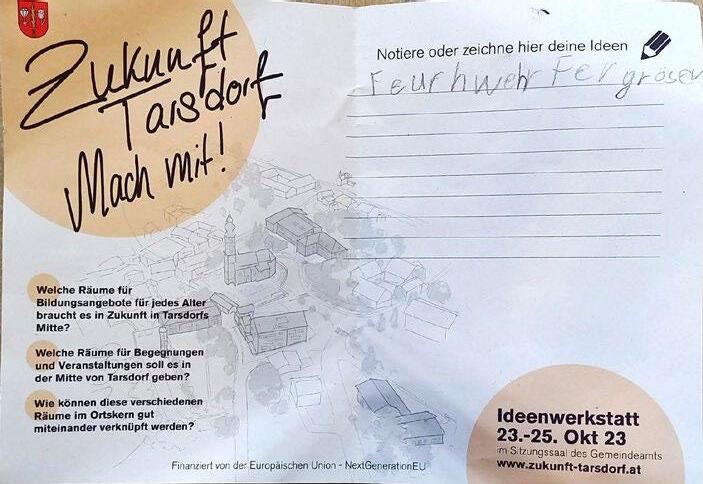 Zukunft
Tarsdorf
Mach mit!
Notiere oder zeichne hier deine Ideen
Feurhwehr Fergrösen
Welche Räume für
Bildungsangebote für jedes Alter
braucht es in Zukunft in Tarsdorfs
Mitte?
Welche Räume für Begegnungen
und Veranstaltungen soll es in
der Mitte von Tarsdorf geben?
Wie können diese verschiedenen
Räume im Ortskern gut
miteinander verknüpft werden?
Ideenwerkstatt
23.-25. Okt 23
im Sitzungssaal des Gemeindeamts
www.zukunft-tarsdorf.at
Finanziert von der Europäischen Union - NextGenerationEU